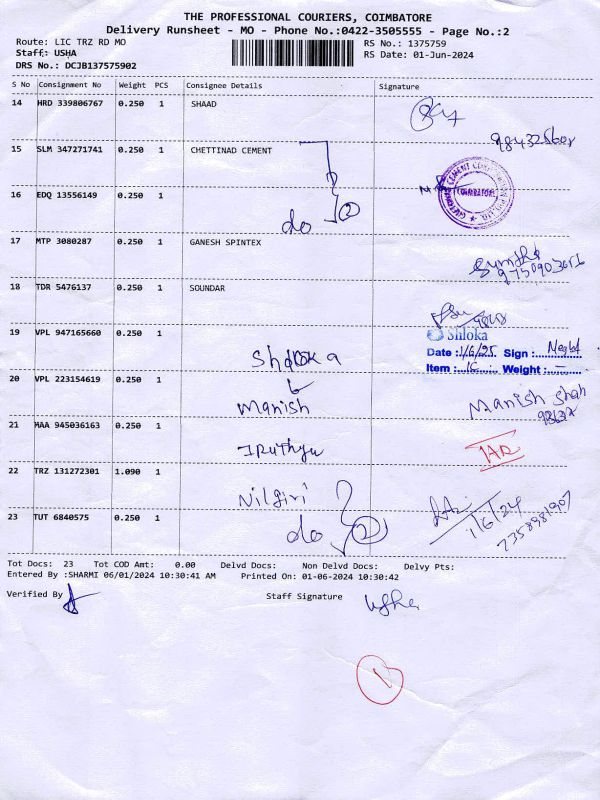 THE PROFESSIONAL COURIERS, COIMBATORE
Delivery Runsheet - MO - Phone No.:0422-3505555 - Page No.:2
Route: LIC TRZ RD MO
RS No.: 1375759
Staff: USHA
RS Date: 01-Jun-2024
DRS No.: DCJB137575902
S No Consignment No Weight PCS Consignee Details Signature
14 HRD 339806767 0.250 1 SHAAD
15 SLM 347271741 0.250 1 CHETTINAD CEMENT
16 EDQ 13556149 0.250 1
do 2
COIMBATORE
17 MTP 3080287 0.250 1 GANESH SPINTEX
18 TDR 5476137 0.250 1 SOUNDAR
19 VPL 947165660 0.250 1
Shloka
Date :1/6/25 Sign :
Item :16 Weight : -
20 VPL 223154619 0.250 1 Manish
Manish Shah
21 MAA 945036163 0.250 1 IRuthyu
22 TRZ 131272301 1.090 1 Nilgiri
1/6/24
23 TUT 6840575 0.250 1 do 2
7358981907
Tot Docs: 23 Tot COD Amt: 0.00 Delvd Docs: Non Delvd Docs: Delvy Pts:
Entered By :SHARMI 06/01/2024 10:30:41 AM Printed On: 01-06-2024 10:30:42
Verified By
Staff Signature Usha
1